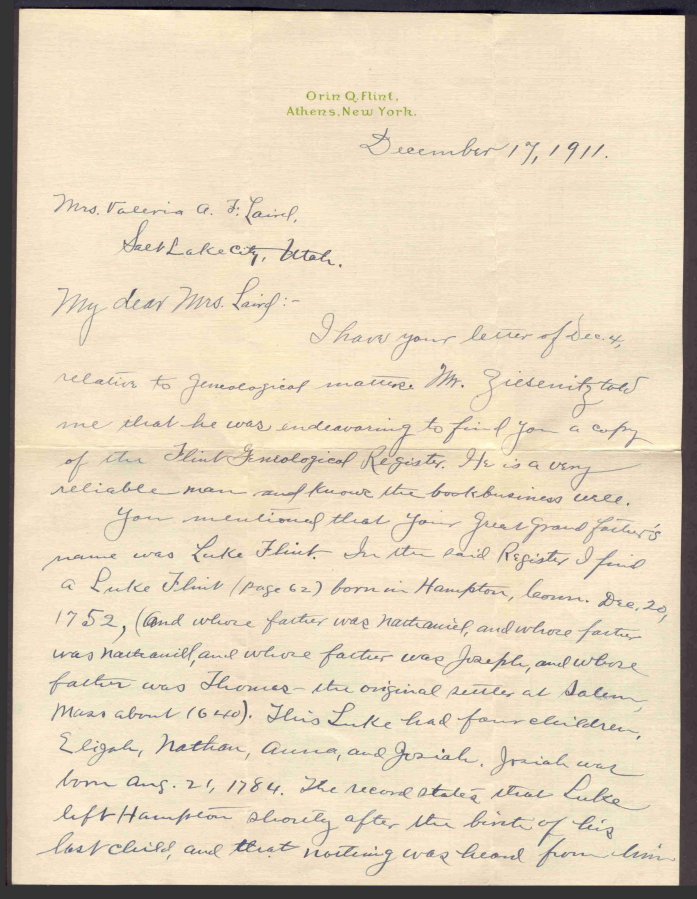 Orin Q. Flint,
Athens, New York.
December 17, 1911.
Mrs. Valeria A. F. Laird,
Salt Lake City, Utah.
My dear Mrs. Laird:-
I have your letter of Dec. 4,
relative to genealogical matters. Mr. Ziesenitz told
me that he was endeavoring to find you a copy
of the Flint Genealogical Register. He is a very
reliable man and knows the book business well.
You mentioned that your Great Grand father's
name was Luke Flint. In the said Register I find
a Luke Flint (page 62) born in Hampton, Conn. Dec. 20,
1752, (and whose father was Nathaniel, and whose father
was Nathaniel, and whose father was Joseph, and whose
father was Thomas - the original settler at Salem,
Mass about 1640). This Luke had four children,
Elijah, Nathan, Anna, and Josiah. Josiah was
born Aug. 21, 1784. The record states that Luke
left Hampton shortly after the birth of his
last child, and that nothing was heard from him